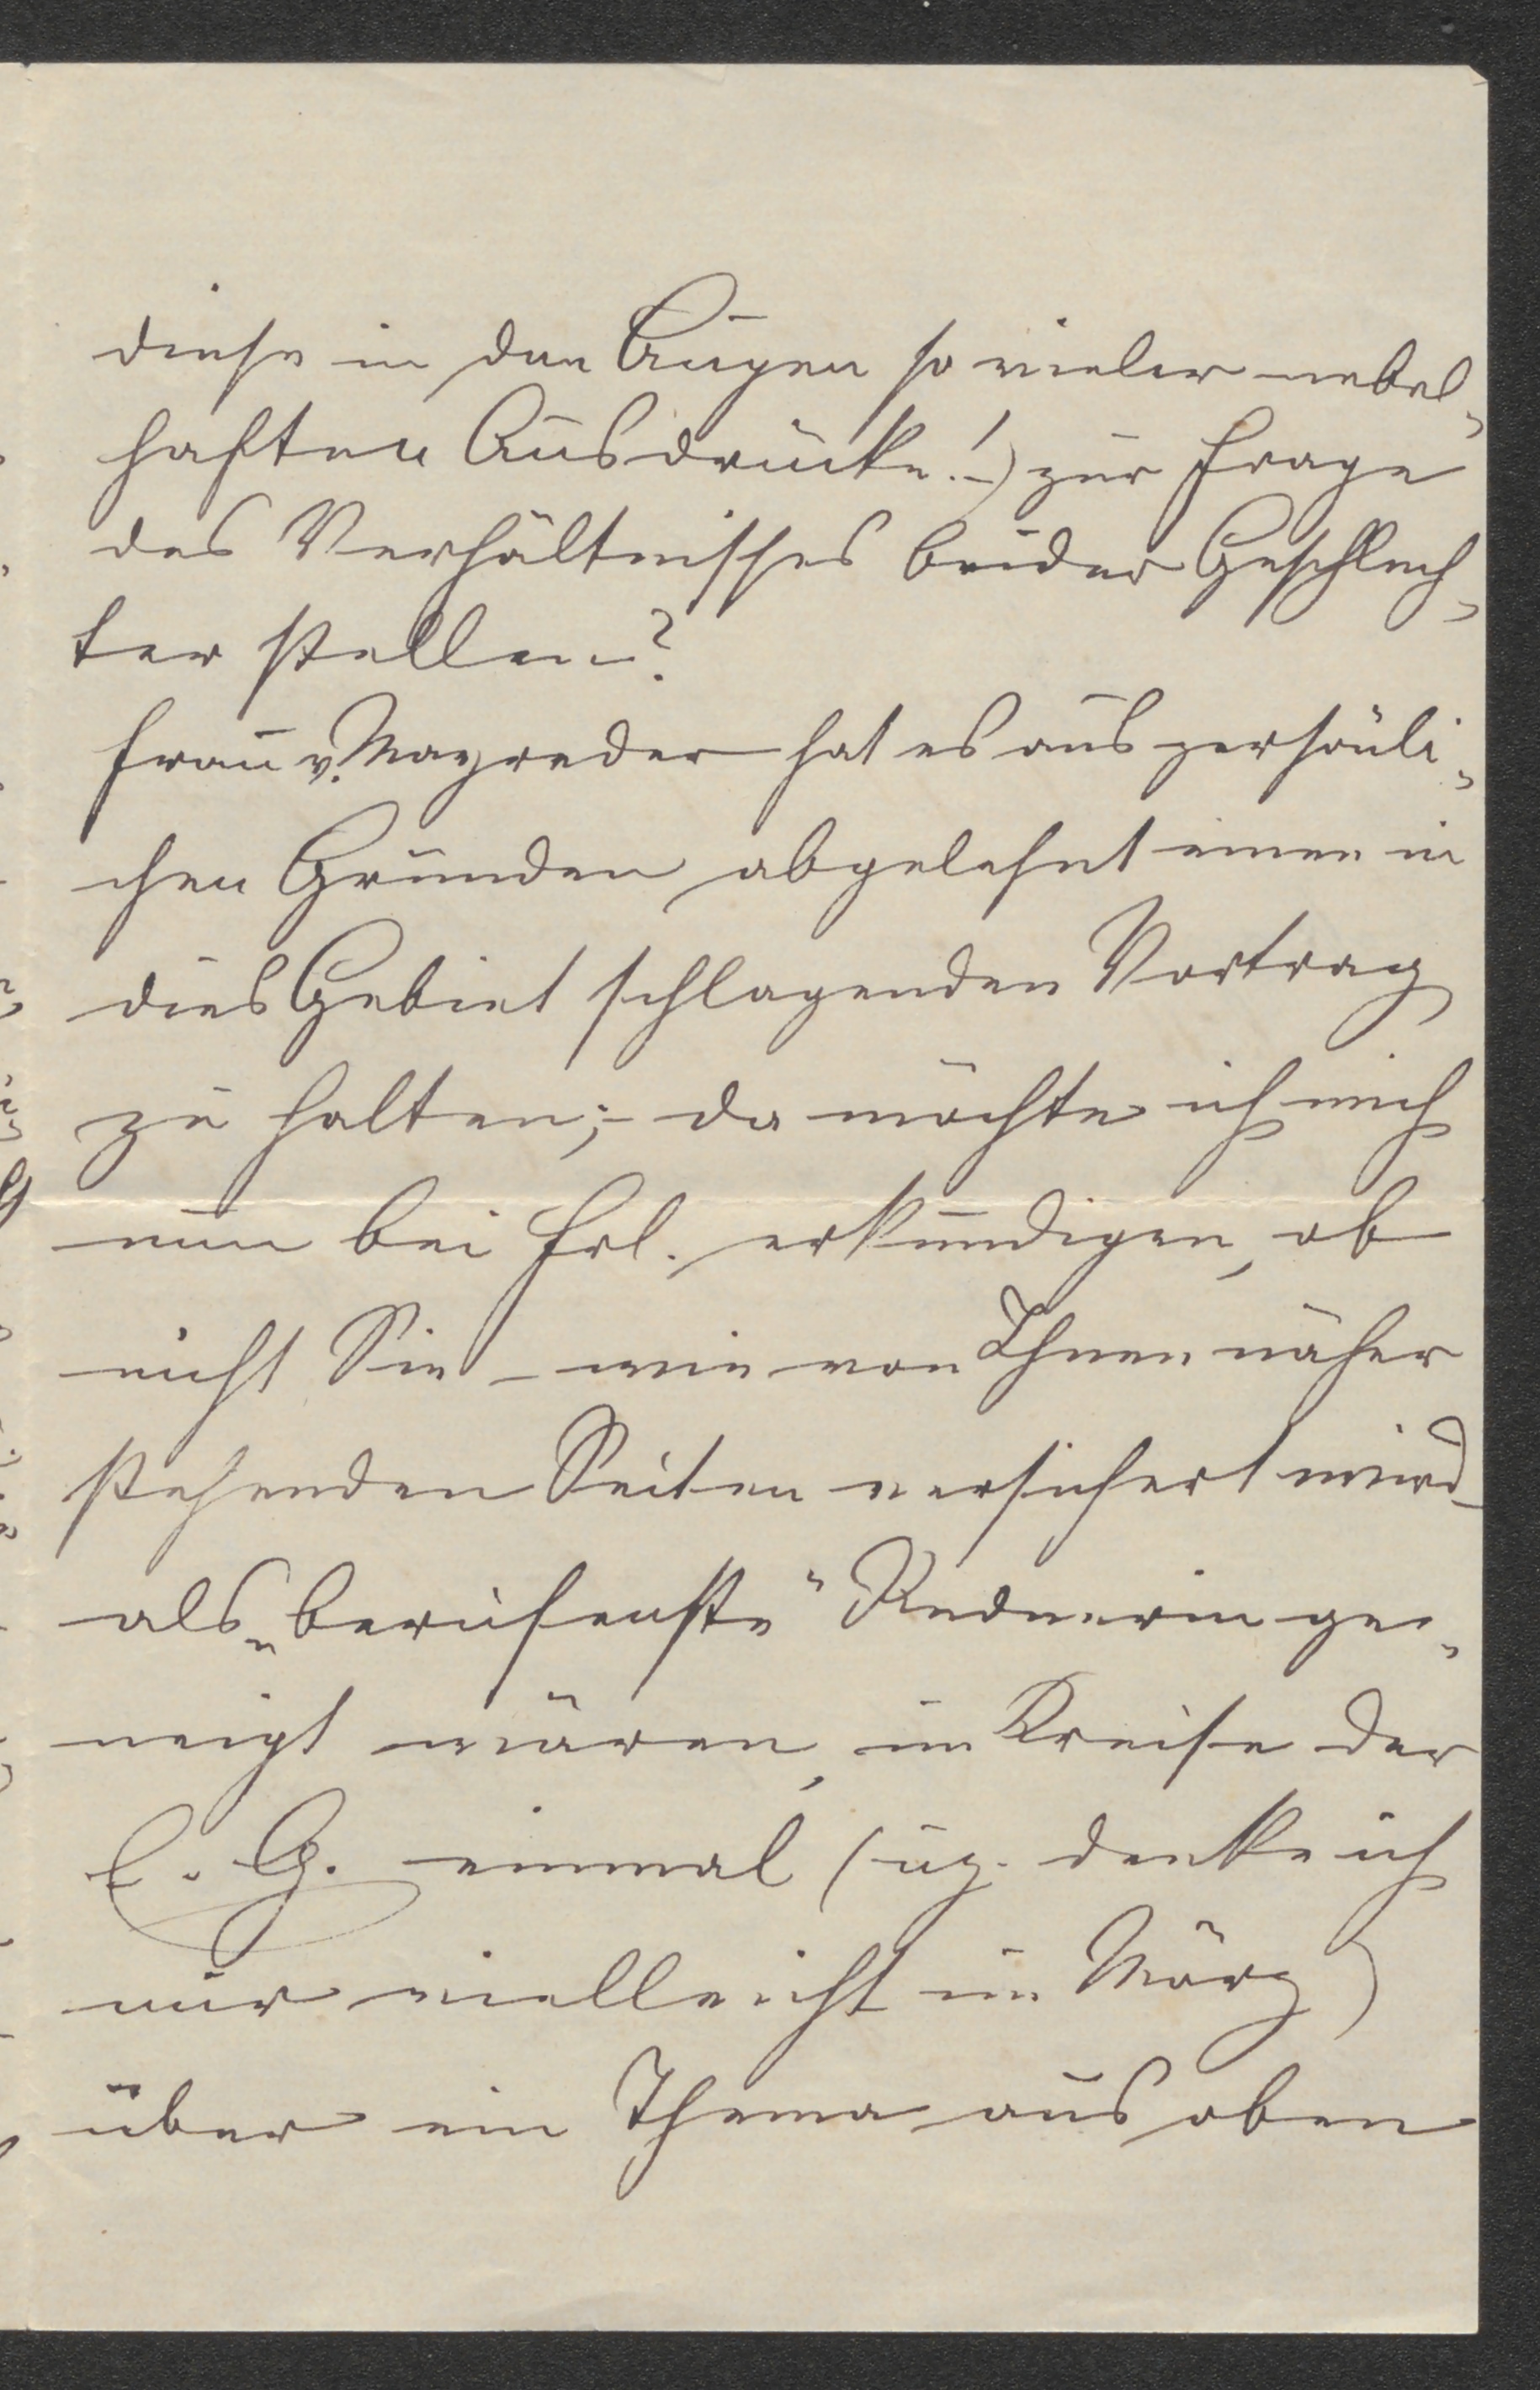 diese in den Augen so vieler nebel-
haften Ausdrücke!-) zur Frage
des Verhältnisses beider Geschlech-
ter stellen?
Frau v. Mayreder hat es aus persönli-
chen Gründen abgelehnt einen in
dies Gebiet schlagenden Vortrag
zu halten; - da möchte ich mich
nun bei Frl. erkundigen, ob
nicht Sie - wie von Ihnen näher
stehenden Seiten versichert wird -
als „berufenste“ Rednerin ge-
neigt wären, im Kreise der
E. G. einmal (uz. denke ich
mir vielleicht im März)
über ein Thema aus oben